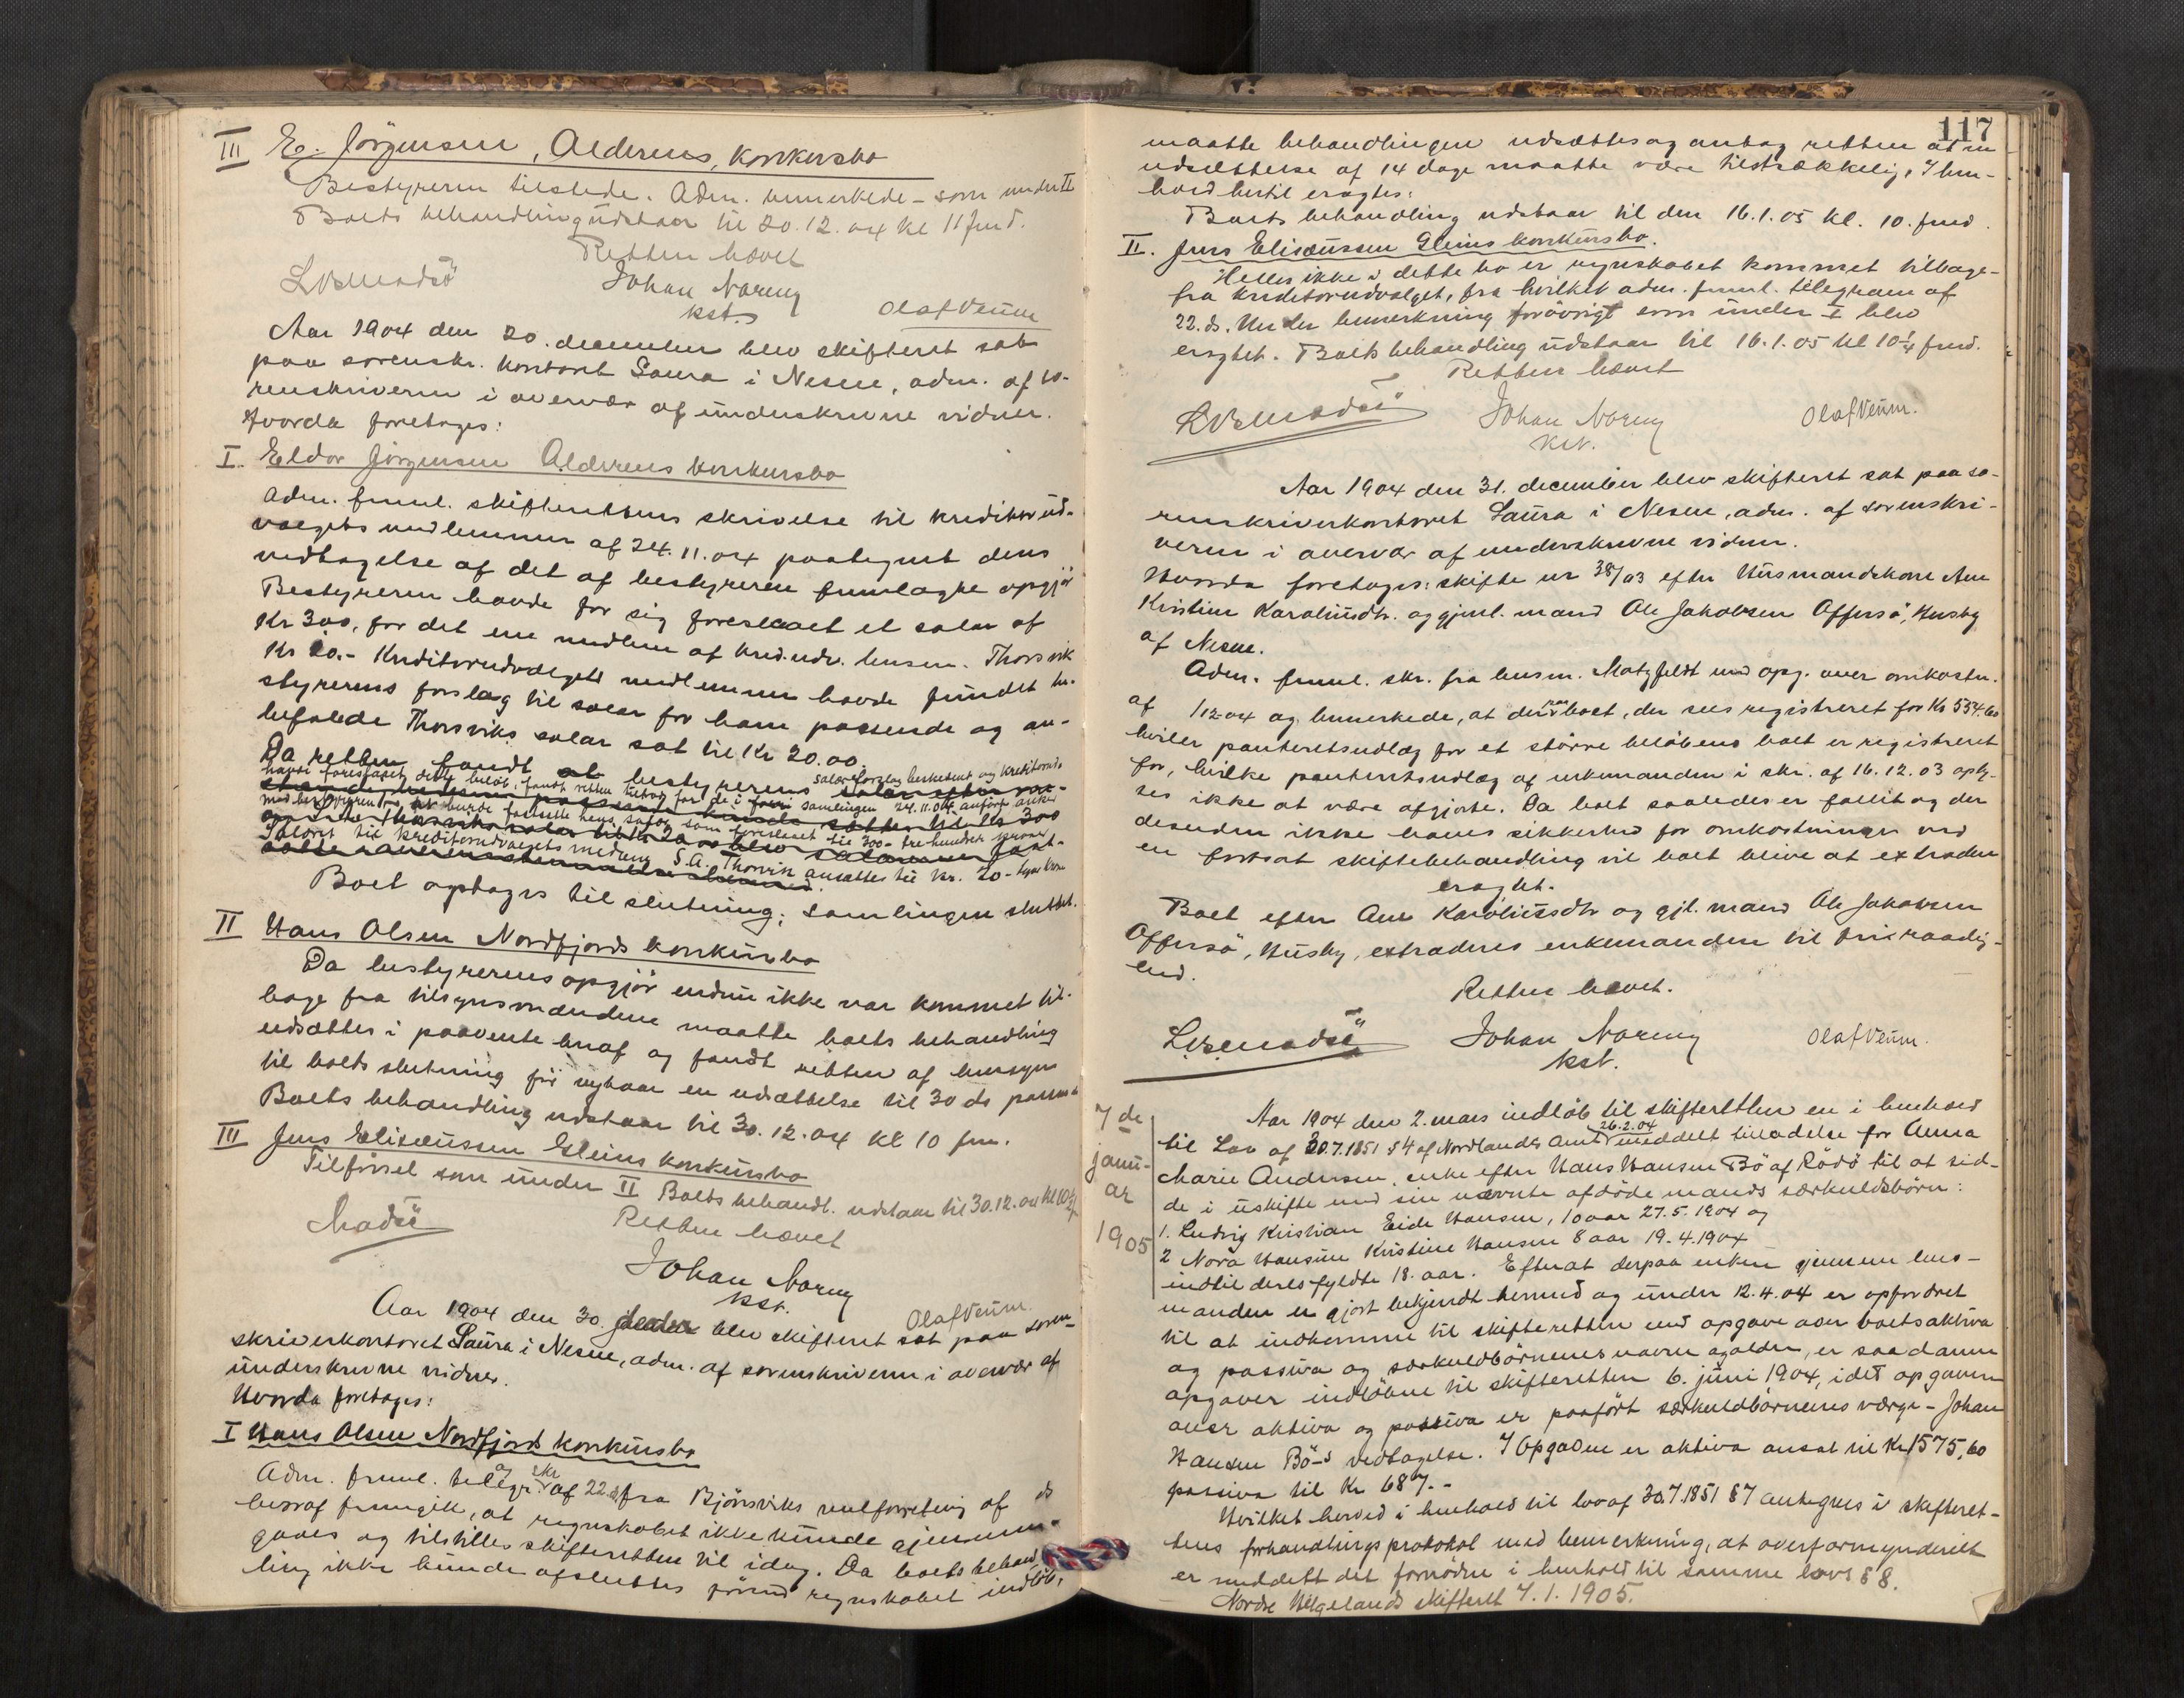 III E. Jörgensen, Alderens, konkursbo
Bestyreren tilstede. Adm. bemerkede - som under II
Boets behandling udstaar til 20.12.04 kl 11 fmd.
Retten hævet
Johan Noreng
kst.
Olaf Veum
Aar 1904 den 20. december blev skifteret sat
paa sorenskr. kontoret Saura i Nesne, adm. af so-
renskriveren i overvær af underskrevne vidner.
Hvorda foretoges:
I. Eldor Jörgensen Alderens konkursbo
Adm. freml. skifterettens skrivelse til kreditorud-
valgets medlemmer af 24.11.04 paategnet dens
vedtagelse af det af bestyreren fremlagte opgjör
Bestyreren havde for sig foreslaaet et salær af
Kr 300, for det ene medlem af kred.udv. lensm. Thorsvik
Kr 20.- Kreditorudvalgets medlemmer havde fundet be-
styrerens forslag til salær for ham passende og an-
befalede Thorsviks salær sat til Kr 20.00.
Da retten fandt at bestyrerens salærforslag beskedent og kreditorudv.
havde foreslaaet dette beløb, fandt retten tiltog for de i samlingen 24.11.04 anførte
med bestyreren, at burde fastsætte hans salær som foreslaaet til 300- tre hundrer kroner
Salæret til kreditorudvalgets medlem S.A. Thorsvik ansættes til Kr. 20- tyve kroner
Boet optoges til slutning; samlingen sluttet.
II Hans Olsen Nordfjords konkursbo
Da bestyrerens opgjör endnu ikke var kommet til-
bage fra tilsynsmændene maatte boets behandling
udsættes i paavente heraf og fandt retten af hensyn
til boets slutning för nytaar en udsættelse til 30 ds passende
Boets behandling udstaar til 30.12.04 kl 10 fm.
III Jens Eliseussen Gleins konkursbo
Tilförsel som under II Boets behandl. udstaar til 30.12.04 kl 10½
Retten hævet
Madsö
Johan Noreng
kst.
Olaf Veum.
Aar 1904 den 30. blev skifteret sat paa soren-
skriverkontoret Saura i Nesne, adm. af sorenskriveren i overvær af
underskrevne vidner.
Hvorda foretoges:
I Hans Olsen Nordfjord konkursbo
Adm. freml. telegr. og skr af 22. ds fra Bjönsviks
hvoraf fremgik, at regnskabet ikke kunde gjennem-
gaaes og tilstilles skifteretten til idag. Da boets behand-
ling ikke kunde afsluttes förend regnskabet indlöb,
117
maatte behandlingen udsættes og antog retten at en
udsættelse af 14 dage maatte være tilstrækkelig, I hen-
hold hertil eragtes:
Boets behandling udstaar til den 16.1.05 kl. 10. fmd.
II. Jens Eliseussen Gleins konkursbo.
Heller ikke i dette bo er regnskabet kommet tilbage-
fra kreditorudvalget, fra hvilket adm. freml. telegram af
22. ds. Under bemerkning forövrigt som under I blev
eragtet. Boets behandling udstaar til 16.1.05 kl 10¼ fmd.
Retten hævet
Johan Noreng
kst.
Olaf Veum.
Aar 1904 den 31. december blev skifteret sat paa so-
renskriverkontoret Saura i Nesne, adm. af sorenskri-
veren i overvær af underskrevne vidner.
Hvorda foretoges: skifte nr 38/03 efter Husmandskone Ane
Kristine Karoliusdtr. og gjenl. mand Ole Jakobsen Offersö, Husby
af Nesne.
Adm. freml. skr. fra lensm. Motzfeldt med opg. over omkostn.
af 1/12 04 og bemerkede, at der paa boet, der sees registreret for Kr 554.60
hviler panteretsudlæg for et större belöb end boet er registreret
for, hvilke panteretsudlæg af enkemanden i skr. af 16.12.03 oply-
ses ikke at være afgjorte. Da boet saaledes er fallit og der
desuden ikke haves sikkerhed for omkostninger ved
en fortsat skiftebehandling vil boet blive at extradere
eragtet.
Boet efter Ane Karoliusdtr og gjl. mand Ole Jakobsen
Offersö, Husby, extraderes enkemanden til fri raadig-
hed.
Retten hævet.
Johan Noreng
kst.
Olaf Veum.
7de
janu-
ar
1905
Aar 1904 den 2. mars indlöb til skifteretten en i henhold
til Lov af 30.7.1851 § 4 af Nordlands Amt 26.2.04 meddelt tilladelse for Anna
Marie Andersen, enke efter Hans Hansen Bö af Rödö til at sid-
de i uskifte med sin nævnte afdöde mands særkuldsbörn:
1. Ludvig Kristian Eide Hansen, 10 aar 27.5.1904 og
2 Nora Hansine Kristine Hansen 8 aar 19.4.1904
indtil deres fyldte 18. aar. Efterat derpaa enken gjennem lens-
manden er gjort bekjendt hermed og under 12.4.04 er opfordret
til at indkomme til skifteretten med opgave over boets aktiva
og passiva og særkuldbörnenes navn og alder, er saadanne
opgaver indlöbne til skifteretten 6. juni 1904, idet opgaven
over aktiva og passiva er paafört særkuldbörnenes værge - Johan
Hansen Bö-s vedtagelse. I Opgaven er aktiva ansat til Kr 1575,60
passiva til Kr 687.-
Hvilket herved i henhold til lov af 30.7.1851 § 7 antegnes i skifteret-
tens forhandlingsprotokol med bemerkning, at overformynderiet
er meddelt det fornödne i henhold til samme lovs § 8.
Nordre Helgelands skifteret 7.1.1905.